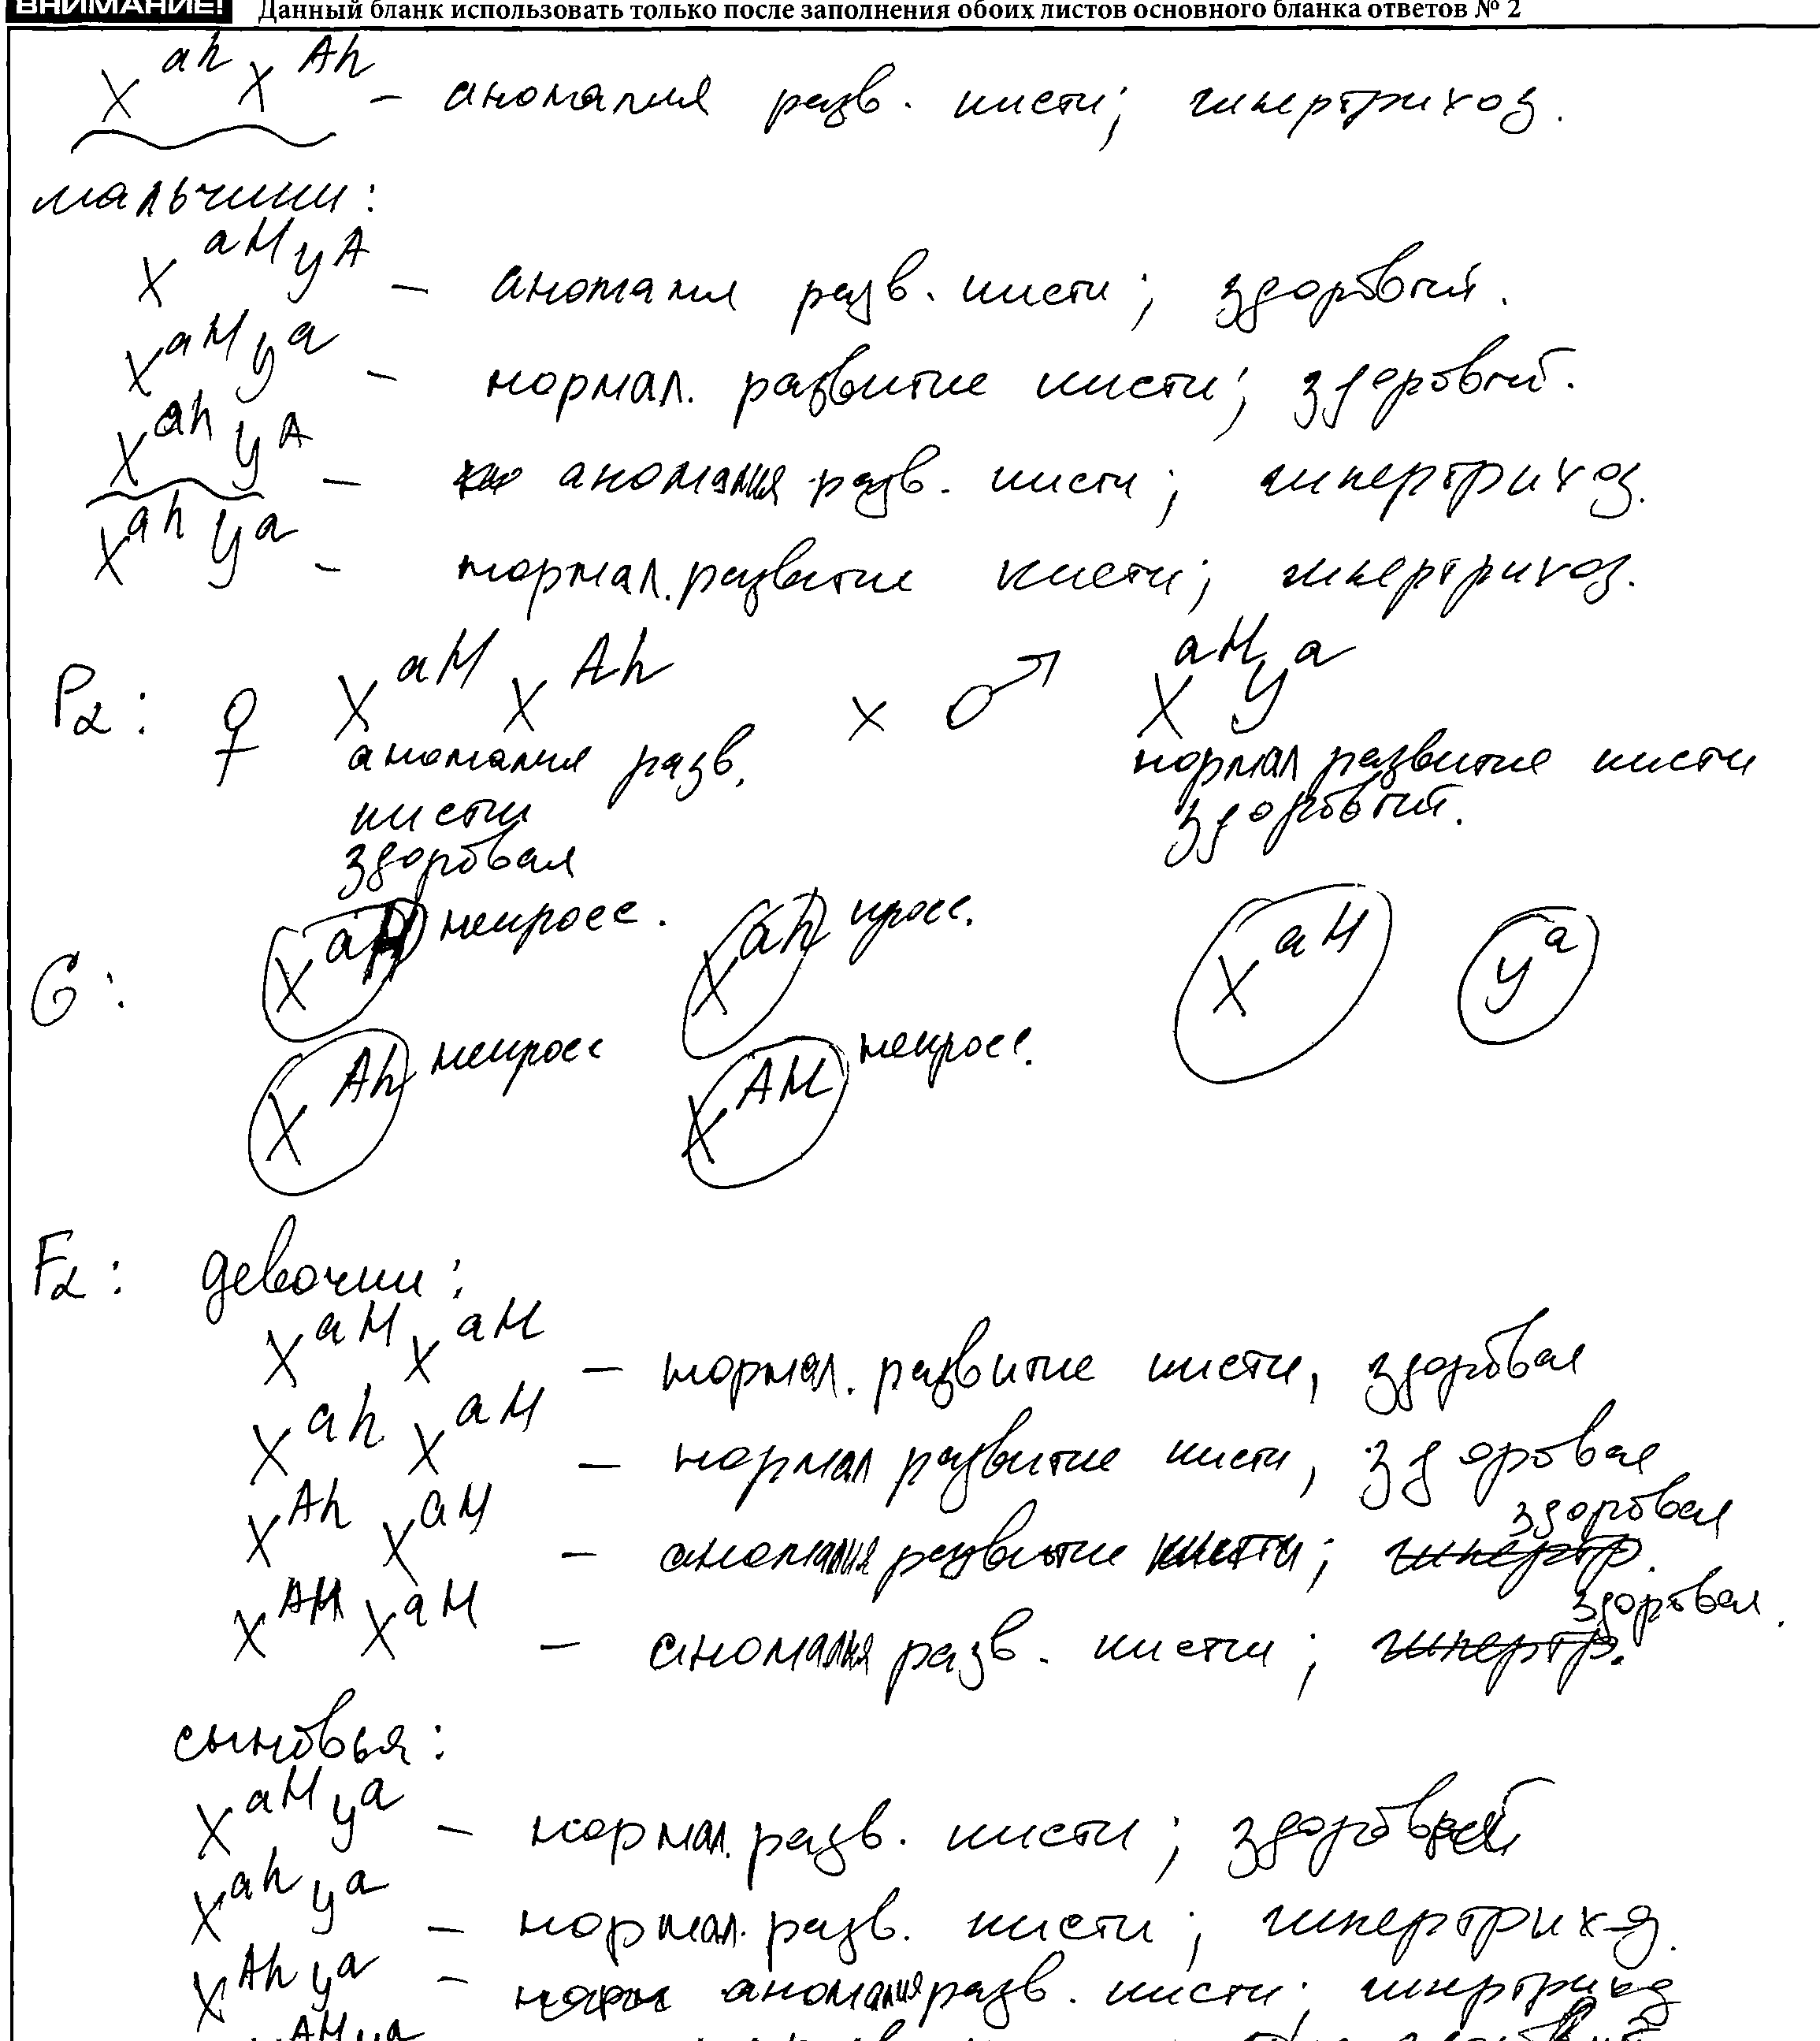 ВНИМАНИЕ! Данный бланк использовать только после заполнения обоих листов основного бланка ответов № 2
X^ah X^Ah – аномалия разв. кисти; гипертрихоз.
мальчики:
X^aH Y^A – аномалия разв. кисти; здоровый.
X^aH Y^a – нормал. развитие кисти; здоровый.
X^ah Y^A – аномалия разв. кисти; гипертрихоз.
X^ah Y^a – нормал. развитие кисти; гипертрихоз.
P2: ♀ X^aH X^Ah x ♂ X^aH Y^a
аномалия разв. нормал развитие кисти
кисти здоровый.
здоровая
G: X^aH некросс. X^ah кросс. X^aH Y^a
X^Ah некросс X^AH некросс.
F2: девочки:
X^aH X^aH – нормал. развитие кисти, здоровая
X^ah X^aH – нормал развитие кисти, здоровая
X^Ah X^aH – аномалия развитие кисти; гипертр. здоровая
X^AH X^aH – аномалия разв. кисти; гипертр. здоровая.
сыновья:
X^aH Y^a – нормал. разв. кисти; здоровый
X^ah Y^a – нормал. разв. кисти; гипертрихоз.
X^Ah Y^a – аномалия разв. кисти; гипертрихоз
X^AH Y^a